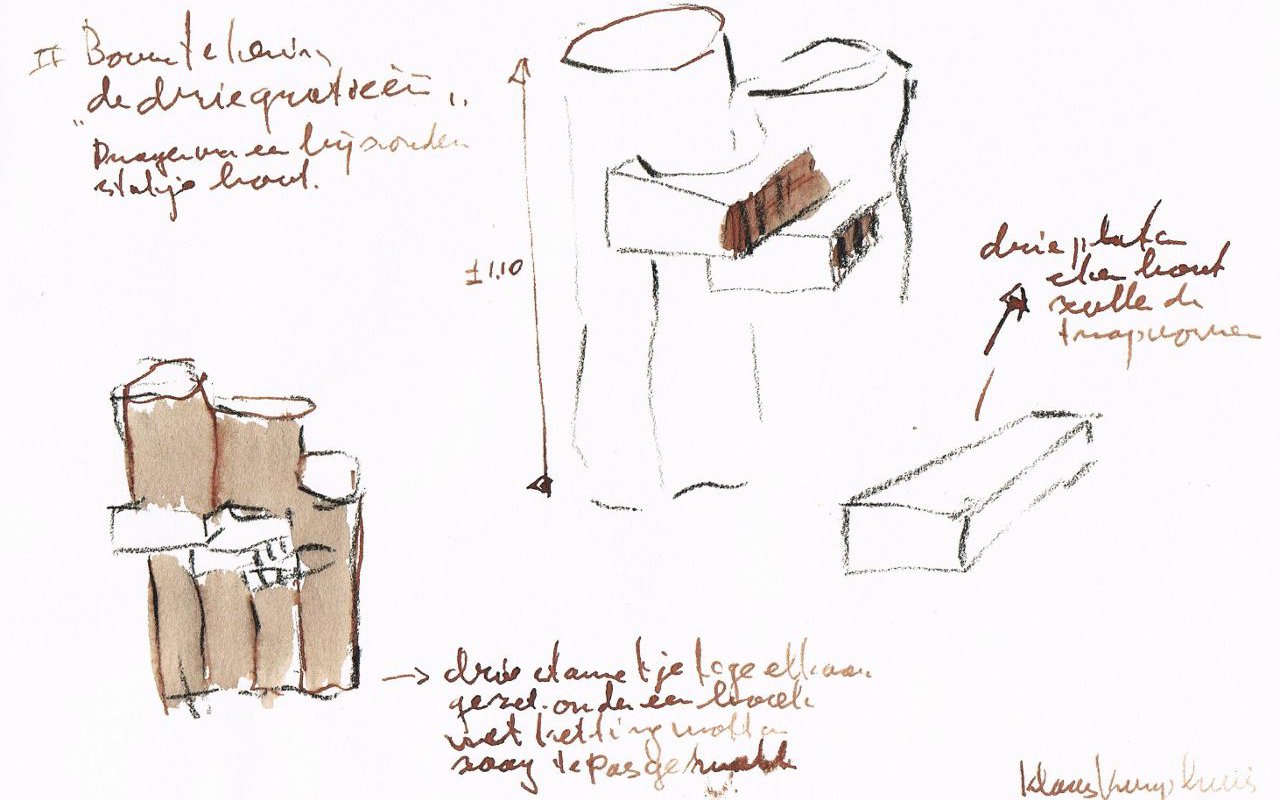 II Boomtekening
"de drie gratieën"
Drager van een bijzonder
stukje hout.
± 1.10
drie platen
eikenhout
zullen de
trap vormen
→ drie stammetjes tegen elkaar
gezet onder een hoek
met kettingmotor
zaag te pas gemaakt
Klaas